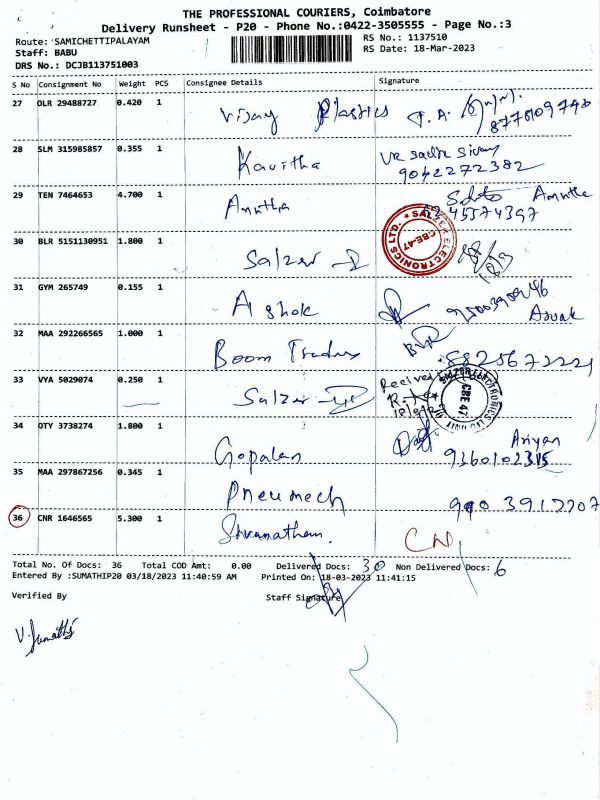 THE PROFESSIONAL COURIERS, Coimbatore
Delivery Runsheet - P20 - Phone No.:0422-3505555 - Page No.:3
Route: SAMICHETTIPALAYAM
RS No.: 1137510
Staff: BABU
RS Date: 18-Mar-2023
DRS No.: DCJB113751003
S No Consignment No Weight PCS Consignee Details Signature
27 OLR 29488727 0.420 1 Vijay Plastics
28 SLM 315985857 0.355 1 Kavitha
9042272382
29 TEN 7464653 4.700 1 Amutha Amutha
SALZER ELECTRONICS LTD. CBE-47
30 BLR 5151130951 1.800 1 Salzer
31 GYM 265749 0.155 1 Ashok
32 MAA 292266565 1.000 1 Boom Traders
8825672221
33 VYA 5029074 0.250 1 Salzer Received
CBE 47
34 OTY 3738274 1.800 1 Gopalan Ariyan
35 MAA 297867256 0.345 1 Pneumech
36 CNR 1646565 5.300 1 Sivanatham. CN
Total No. Of Docs: 36 Total COD Amt: 0.00 Delivered Docs: 30 Non Delivered Docs: 6
Entered By :SUMATHIP20 03/18/2023 11:40:59 AM Printed On: 18-03-2023 11:41:15
Verified By Staff Signature
V. Sumathi